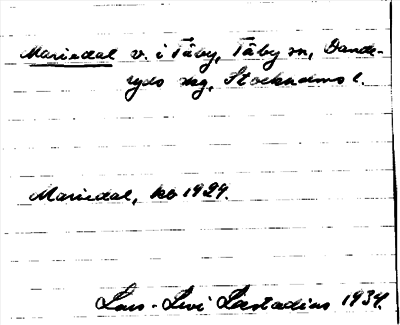 Mariedal v. i Täby, Täby sn, Dande-
ryds skg, Stockholms l.
Mariedal, kb 1929.
Lars-Levi Læstadius 1934.